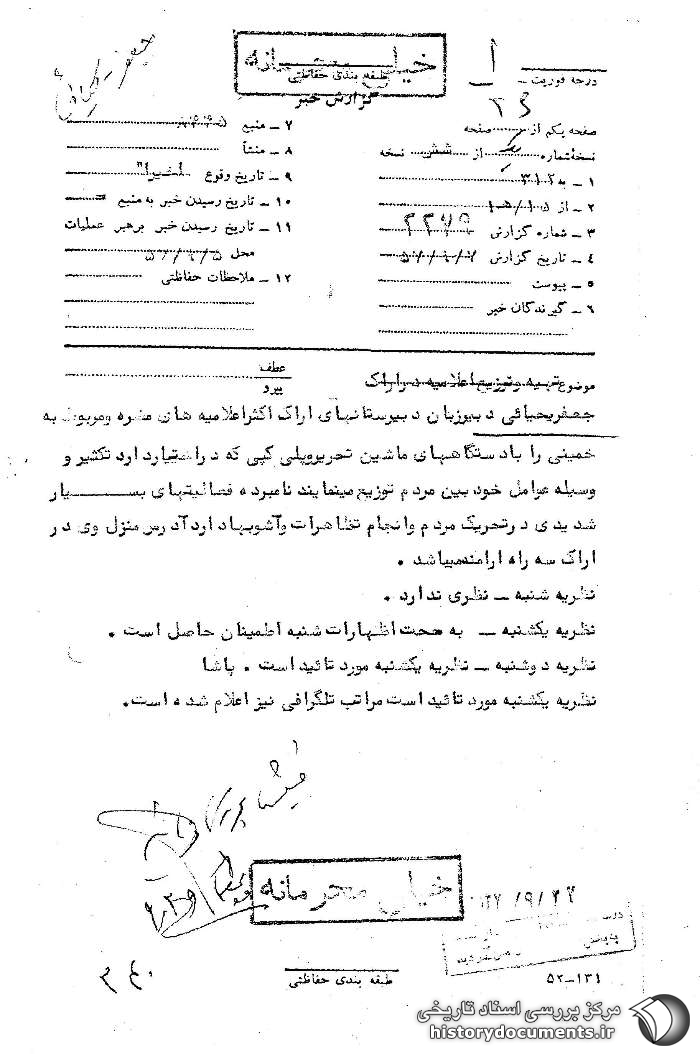 خیلی محرمانه
طبقه بندی حفاظتی
گزارش خبر
درجه فوریت
صفحه یکم از صفحه
نسخه شماره از شش نسخه
۱ – به ۳۱۲
۲ – از
۳ – شماره گزارش
۴ – تاریخ گزارش
۵ – پیوست
۶ – گیرندگان خبر
۷ – منبع
۸ – منشأ
۹ – تاریخ وقوع اخیرا"
۱۰ – تاریخ رسیدن خبر به منبع
۱۱ – تاریخ رسیدن خبر برهبر عملیات
محل
۱۲ – ملاحظات حفاظتی
عطف
پیرو
موضوع تهیه وتوزیع اعلامیه در اراک
جعفریحیائی دبیرزبان دبیرستانهای اراک اکثراعلامیه های مضره ومربوط به
خمینی را بادستگاههای ماشین تحریروپلی کپی که دراختیاردارد تکثیر و
وسیله عوامل خود بین مردم توزیع مینمایند نامبرده فعالیتهای بسیار
شدیدی درتحریک مردم وانجام تظاهرات وآشوبهادارد آدرس منزل وی در
اراک سه راه ارامنه میباشد .
نظریه شنبه – نظری ندارد .
نظریه یکشنبه – به صحت اظهارات شنبه اطمینان حاصل است .
نظریه دوشنبه – نظریه یکشنبه مورد تائید است . پاشا
نظریه یکشنبه مورد تائید است مراتب تلگرافی نیز اعلام شده است.
خیلی محرمانه
طبقه بندی حفاظتی
۵۲–۱۳۱
مرکز بررسی اسناد تاریخی
historydocuments.ir